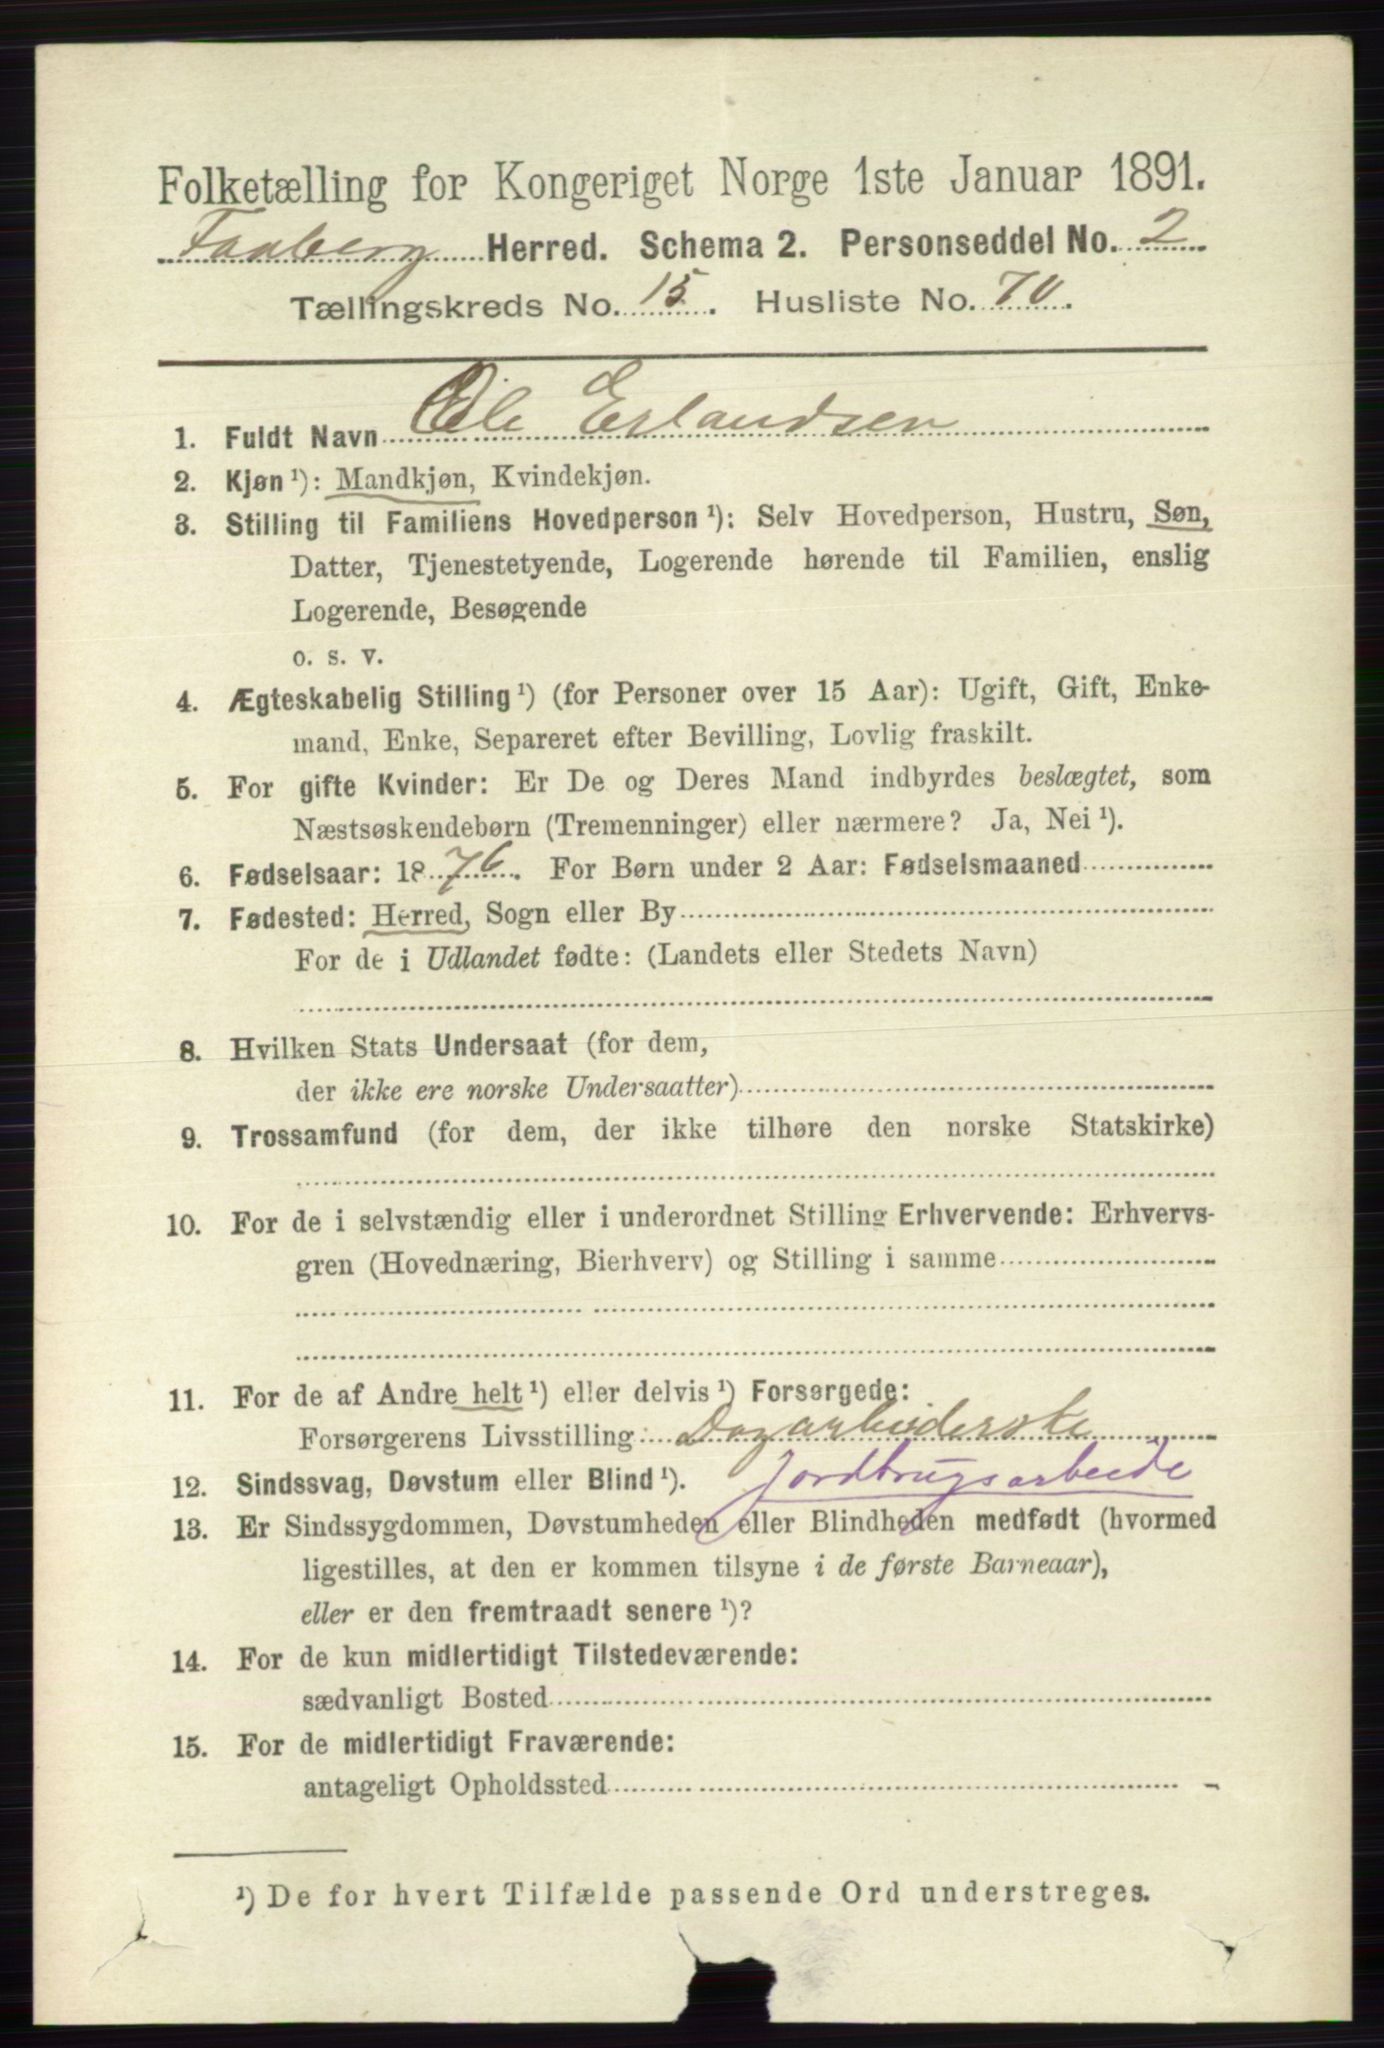 Folketælling for Kongeriget Norge 1ste Januar 1891.
Faaberg Herred. Schema 2. Personseddel No. 2
Tællingskreds No. 15. Husliste No. 70.
1. Fuldt Navn Ole Erlandsen
2. Kjøn ¹): Mandkjøn, Kvindekjøn.
3. Stilling til Familiens Hovedperson ¹): Selv Hovedperson, Hustru, Søn,
Datter, Tjenestetyende, Logerende hørende til Familien, enslig
Logerende, Besøgende
o. s. v.
4. Ægteskabelig Stilling ¹) (for Personer over 15 Aar): Ugift, Gift, Enke-
mand, Enke, Separeret efter Bevilling, Lovlig fraskilt.
5. For gifte Kvinder: Er De og Deres Mand indbyrdes beslægtet, som
Næstsøskendebørn (Tremenninger) eller nærmere? Ja, Nei ¹).
6. Fødselsaar: 1876. For Børn under 2 Aar: Fødselsmaaned
7. Fødested: Herred, Sogn eller By
For de i Udlandet fødte: (Landets eller Stedets Navn)
8. Hvilken Stats Undersaat (for dem,
der ikke ere norske Undersaatter)
9. Trossamfund (for dem, der ikke tilhøre den norske Statskirke)
10. For de i selvstændig eller i underordnet Stilling Erhvervende: Erhvervs-
gren (Hovednæring, Bierhverv) og Stilling i samme
11. For de af Andre helt ¹) eller delvis ¹) Forsørgede:
Forsørgerens Livsstilling: Dagarbeiderske
12. Sindssvag, Døvstum eller Blind ¹). Jordbrugsarbeide
13. Er Sindssygdommen, Døvstumheden eller Blindheden medfødt (hvormed
ligestilles, at den er kommen tilsyne i de første Barneaar),
eller er den fremtraadt senere ¹)?
14. For de kun midlertidigt Tilstedeværende:
sædvanligt Bosted
15. For de midlertidigt Fraværende:
antageligt Opholdssted
¹) De for hvert Tilfælde passende Ord understreges.